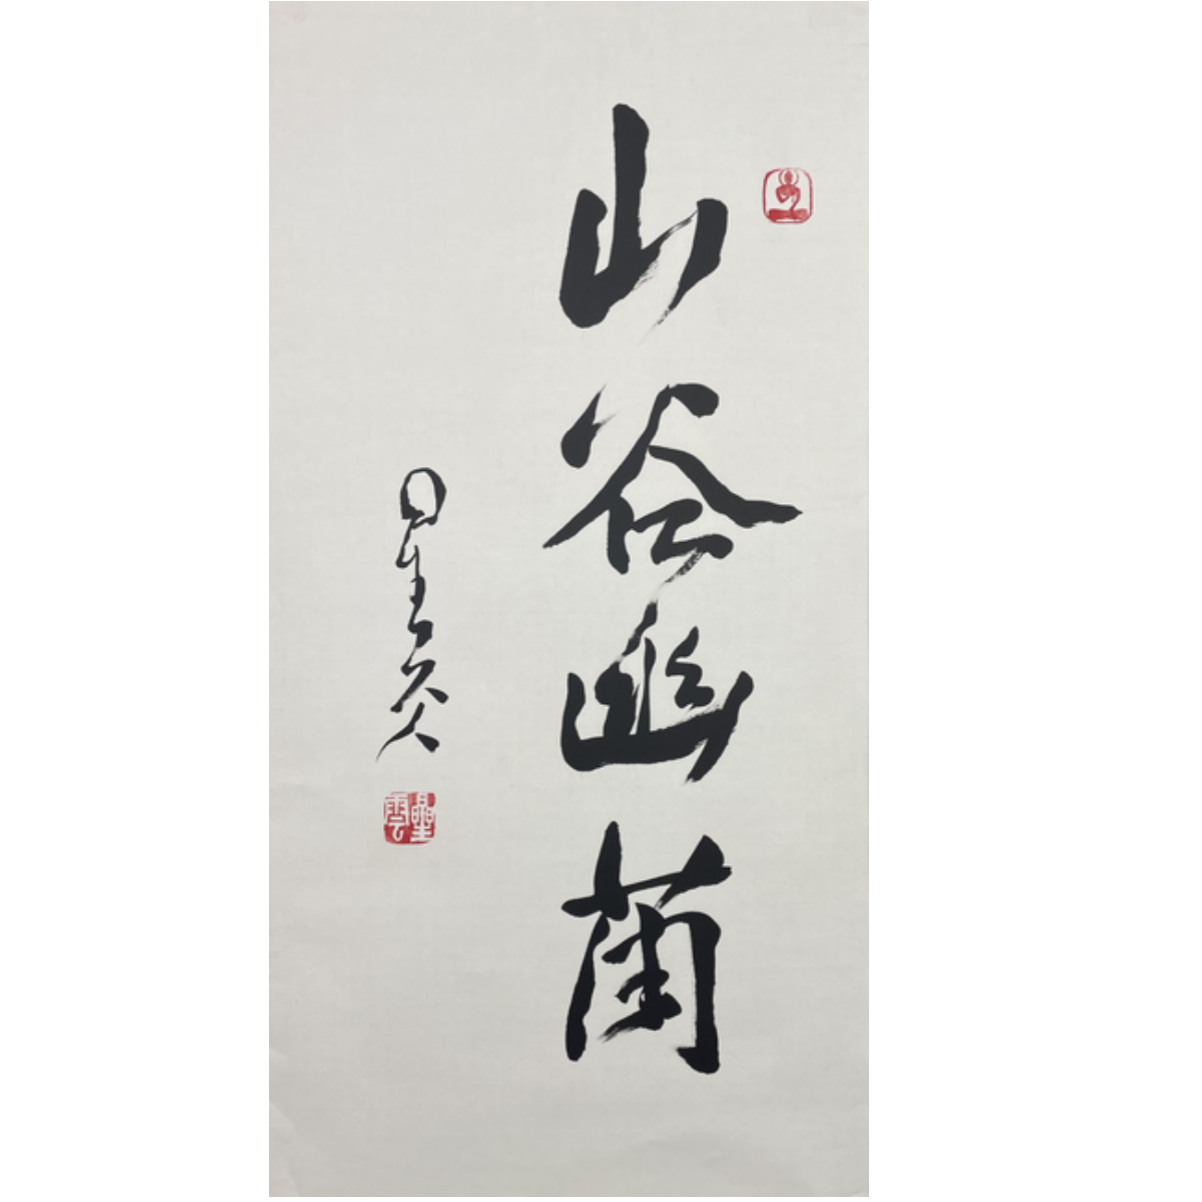 山谷幽蘭
星雲
星雲